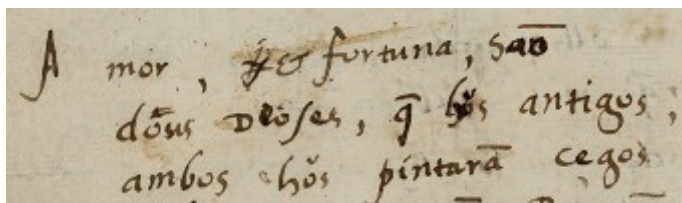 A mor, & fortuna, saõ
doũs Dioses, q̃ hos antigos,
ambos hos pintarã cegos